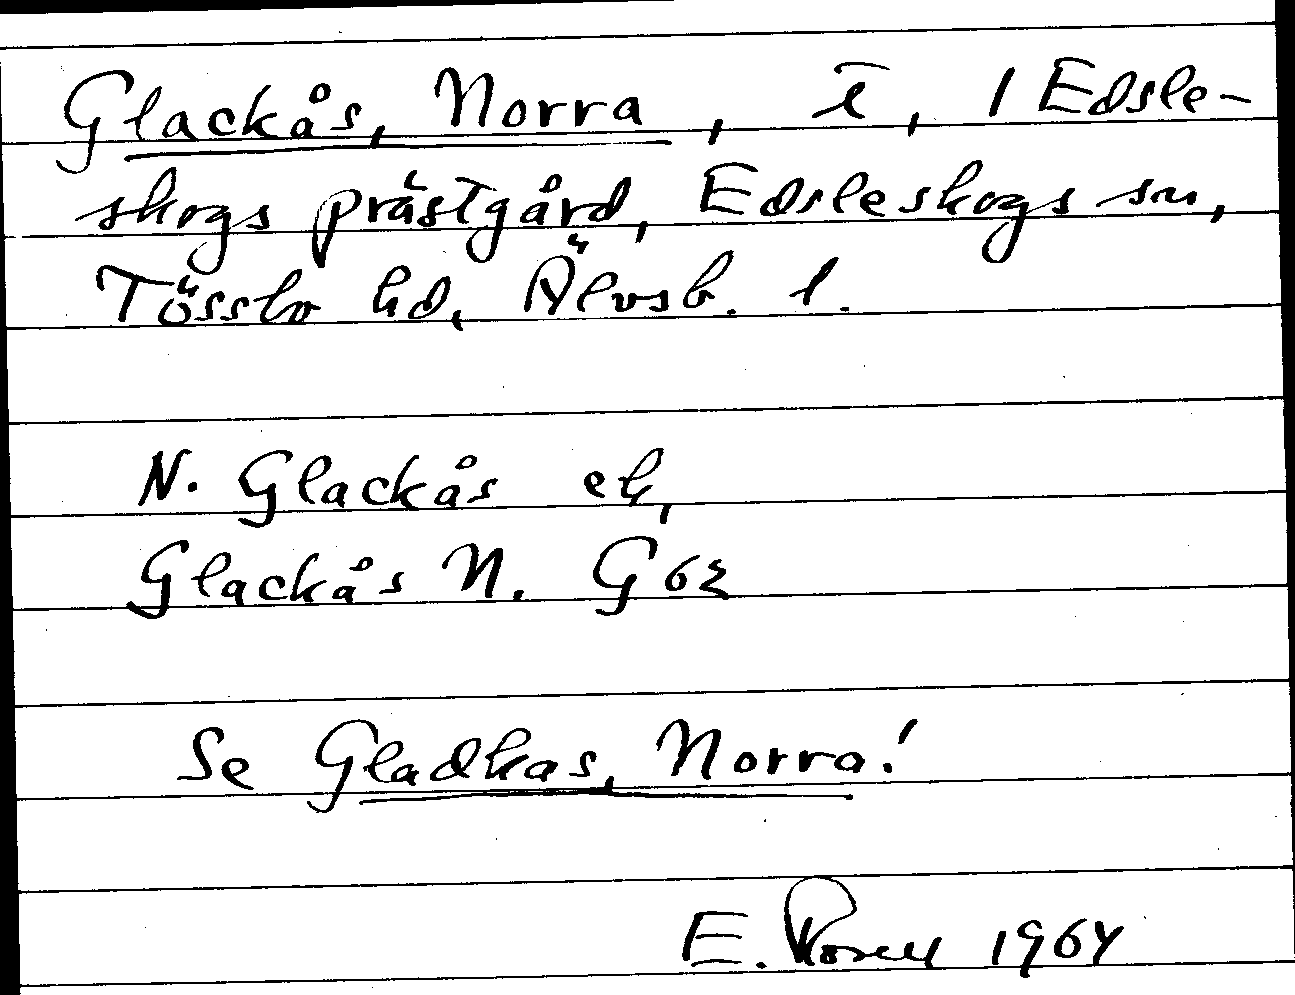 Glackås, Norra, t, 1 Edsle-
skogs prästgård, Edsleskogs sn,
Tössbo hd, Älvsb. l.
N. Glackås ek,
Glackås N. G 62
Se Gladkas, Norra!
E. Rosell 1964